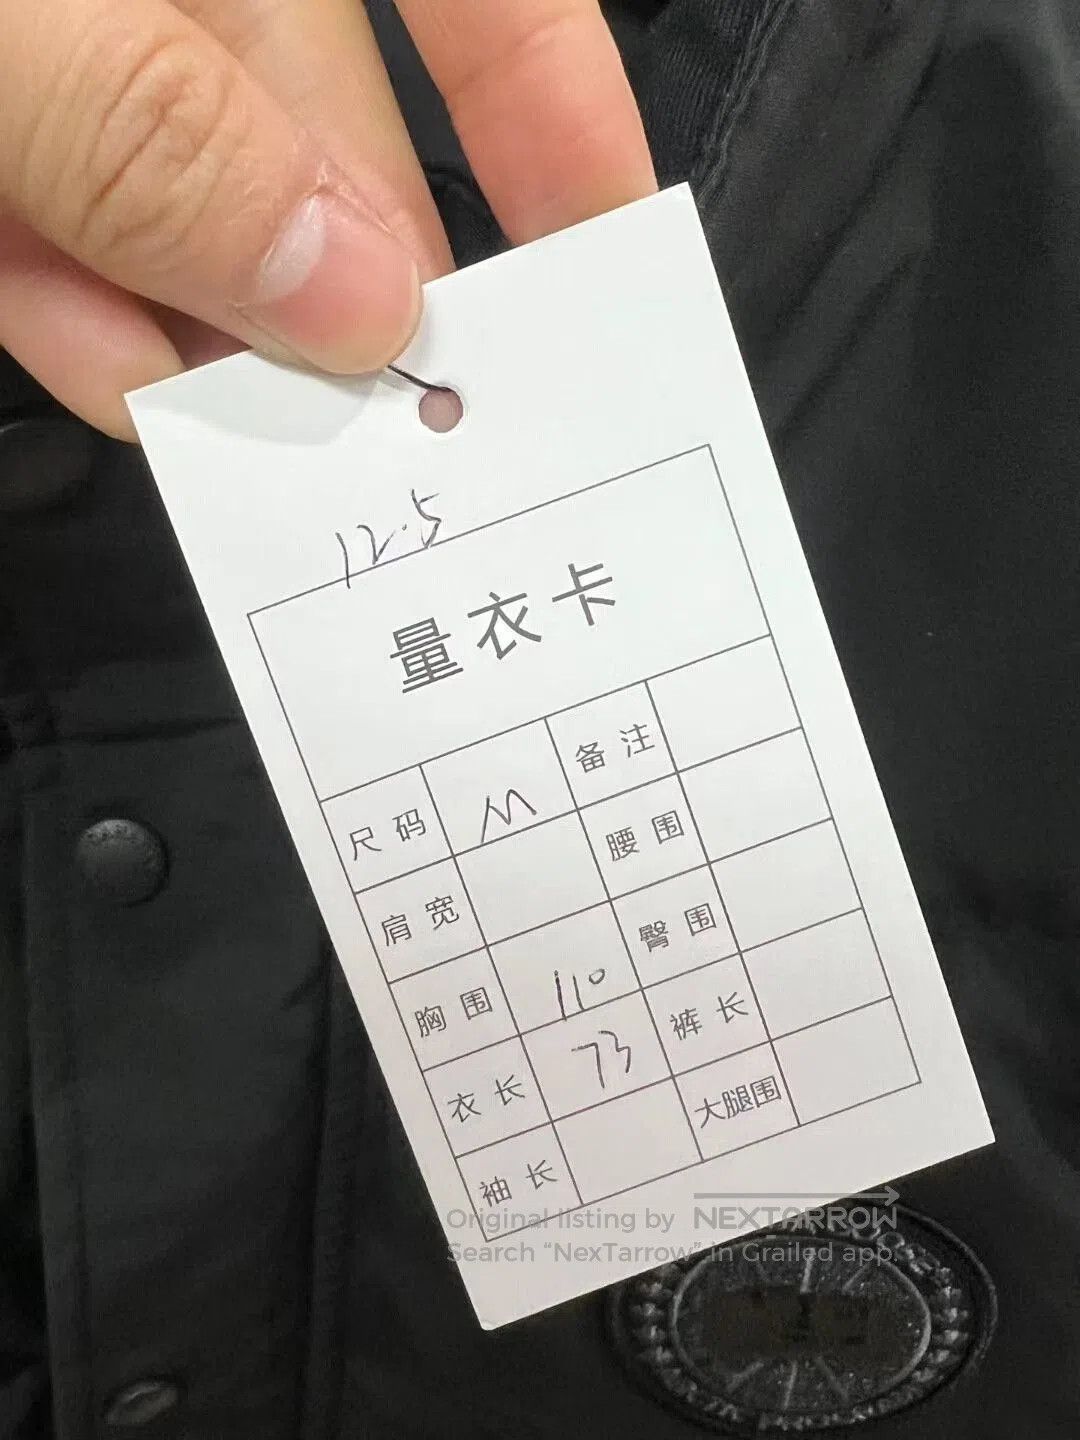 12.5
量衣卡
尺码 M 备注
肩宽 腰围
胸围 110 臀围
衣长 73 裤长
袖长 大腿围
Original listing by NEXTARROW
Search “NexTarrow” in Grailed app